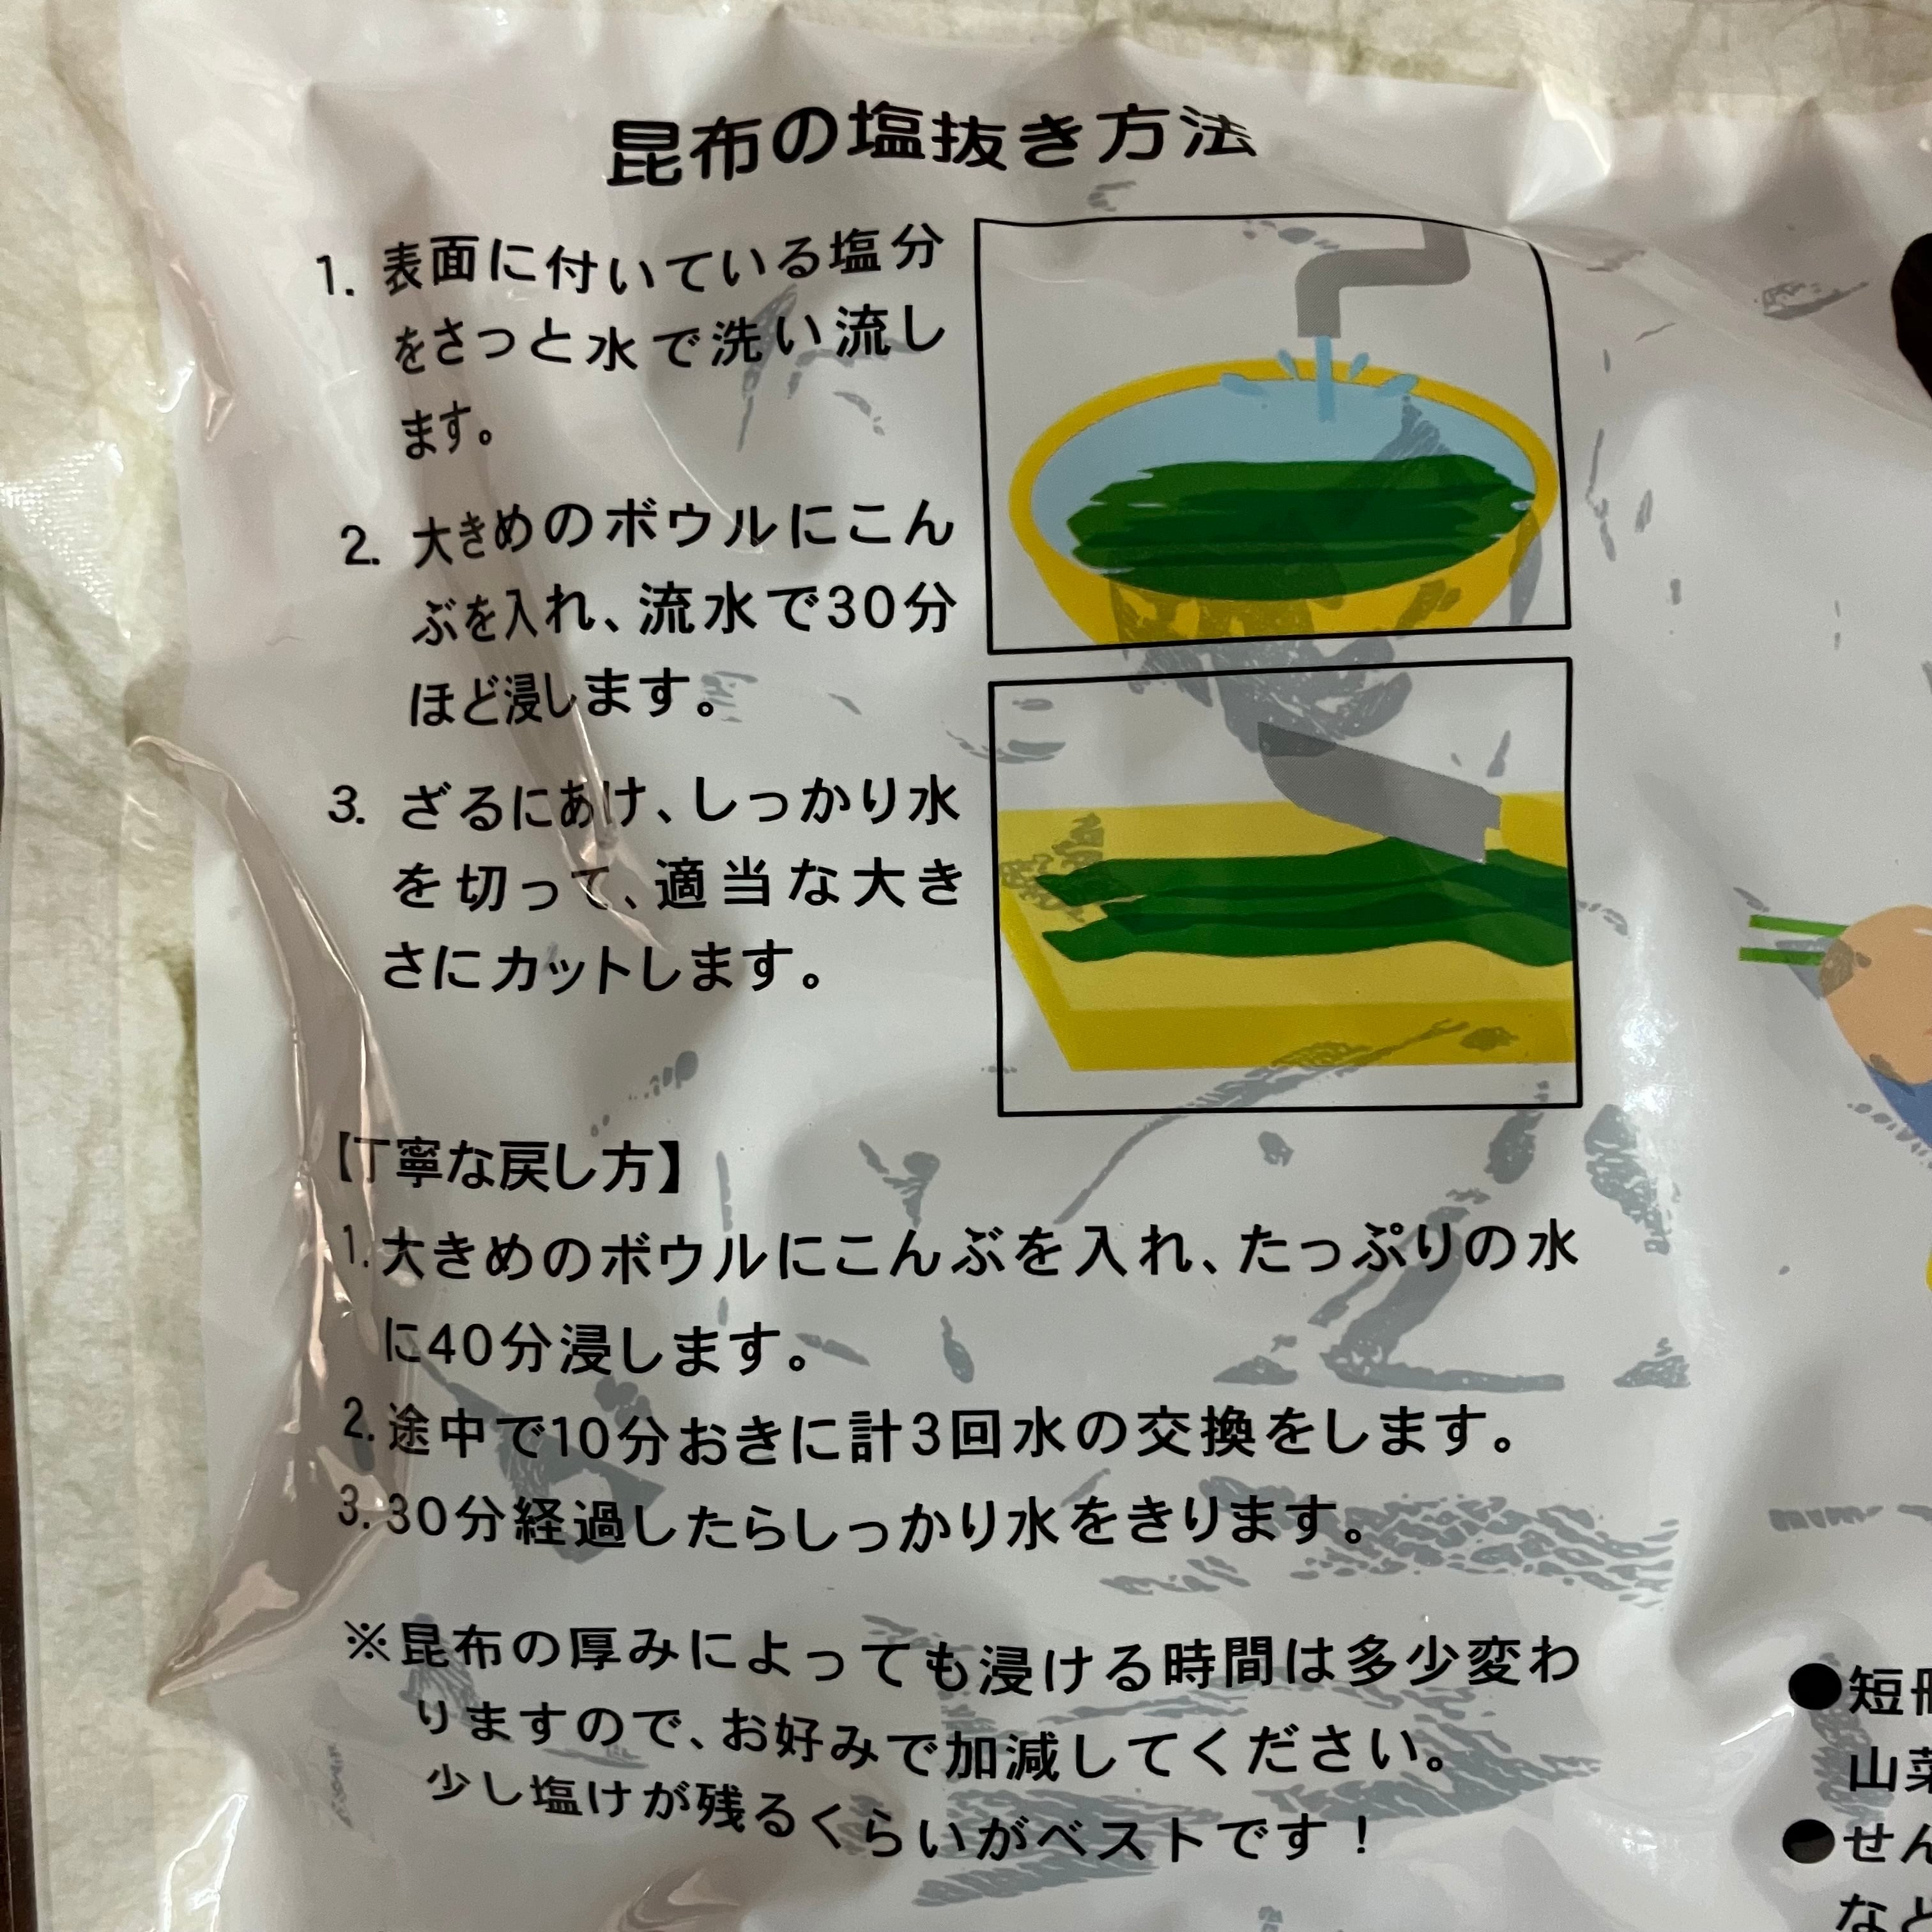 昆布の塩抜き方法
1. 表面に付いている塩分
をさっと水で洗い流し
ます。
2. 大きめのボウルにこん
ぶを入れ、流水で30分
ほど浸します。
3. ざるにあけ、しっかり水
を切って、適当な大き
さにカットします。
【丁寧な戻し方】
1.大きめのボウルにこんぶを入れ、たっぷりの水
に40分浸します。
2.途中で10分おきに計3回水の交換をします。
3.30分経過したらしっかり水をきります。
※昆布の厚みによっても浸ける時間は多少変わ
りますので、お好みで加減してください。
少し塩けが残るくらいがベストです！
●短冊
山菜
●せん
など